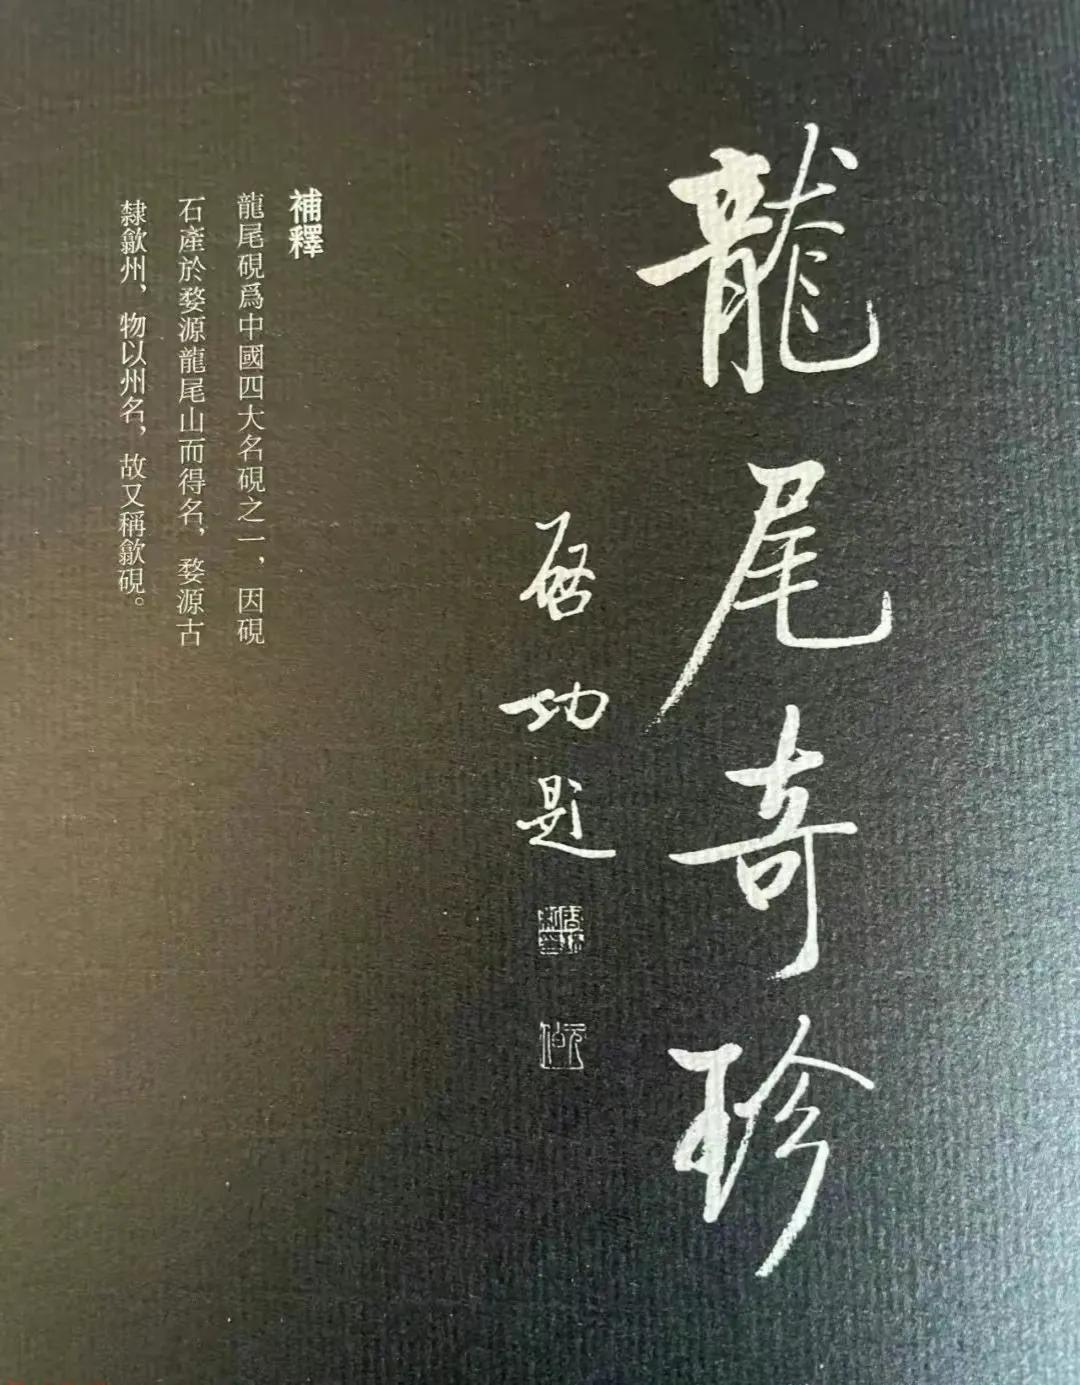 龍尾奇珍
啓功題
補釋
龍尾硯爲中國四大名硯之一，因硯
石產於婺源龍尾山而得名，婺源古
隸歙州、物以州名，故又稱歙硯。